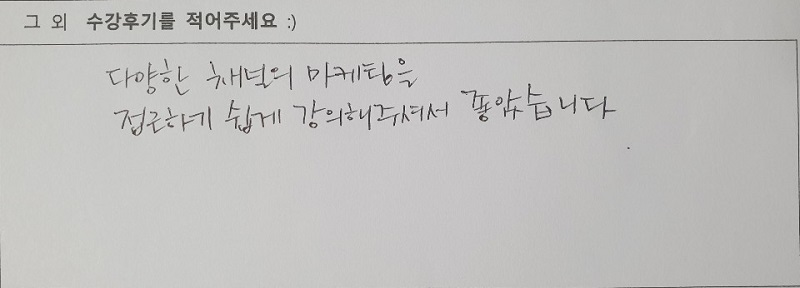 그 외 수강후기를 적어주세요 :)
다양한 채널의 마케팅을
접근하기 쉽게 강의해주셔서 좋았습니다